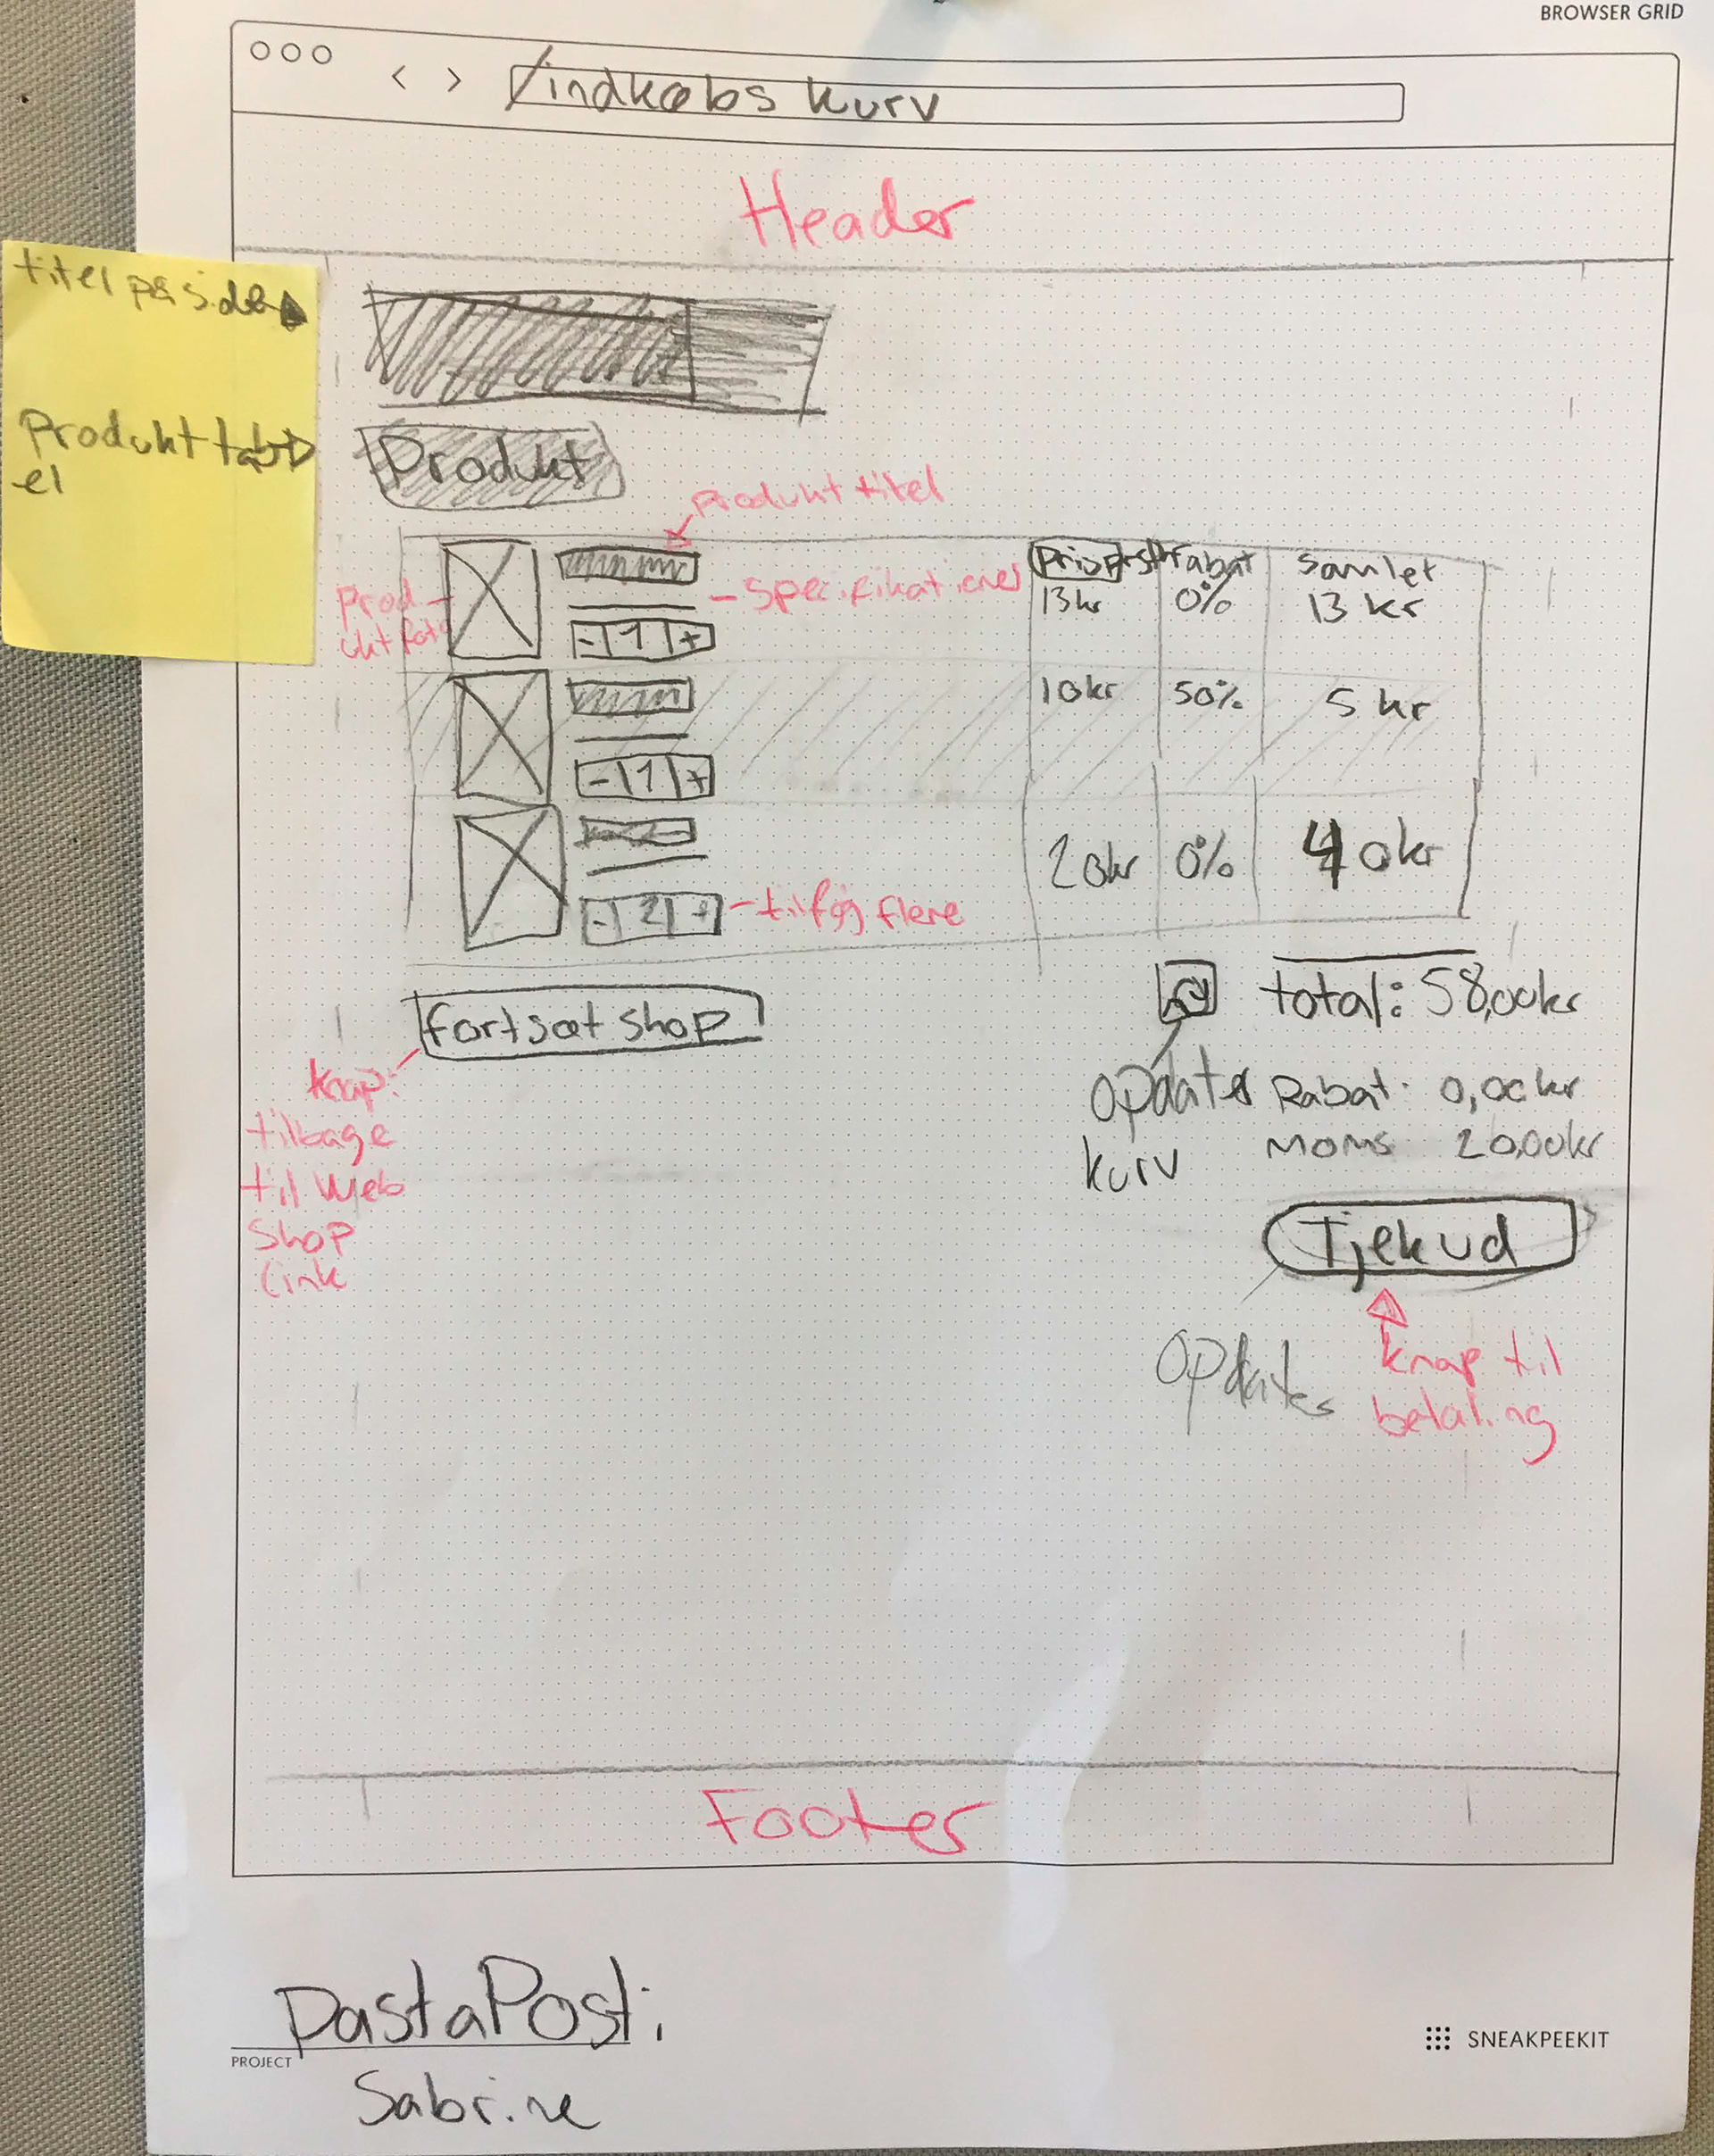 BROWSER GRID
< > /indkøbs kurv
Header
titel på side
Produkt tab
el
Produkt
produkt titel
Pris pr stk rabat samlet
Prod-
ukt foto
- specifikationer
13kr 0% 13 kr
- 1 +
10kr 50% 5 kr
- 1 +
20kr 0% 40kr
- 2 +
- tilføj flere
fortsæt shop
total: 58,00kr
knap:
tilbage
til web
shop
link
opdater
kurv
Rabat: 0,00kr
Moms 20,00kr
Tjek ud
knap til
betaling
Footer
PastaPosti
PROJECT
SNEAKPEEKIT
Sabrine